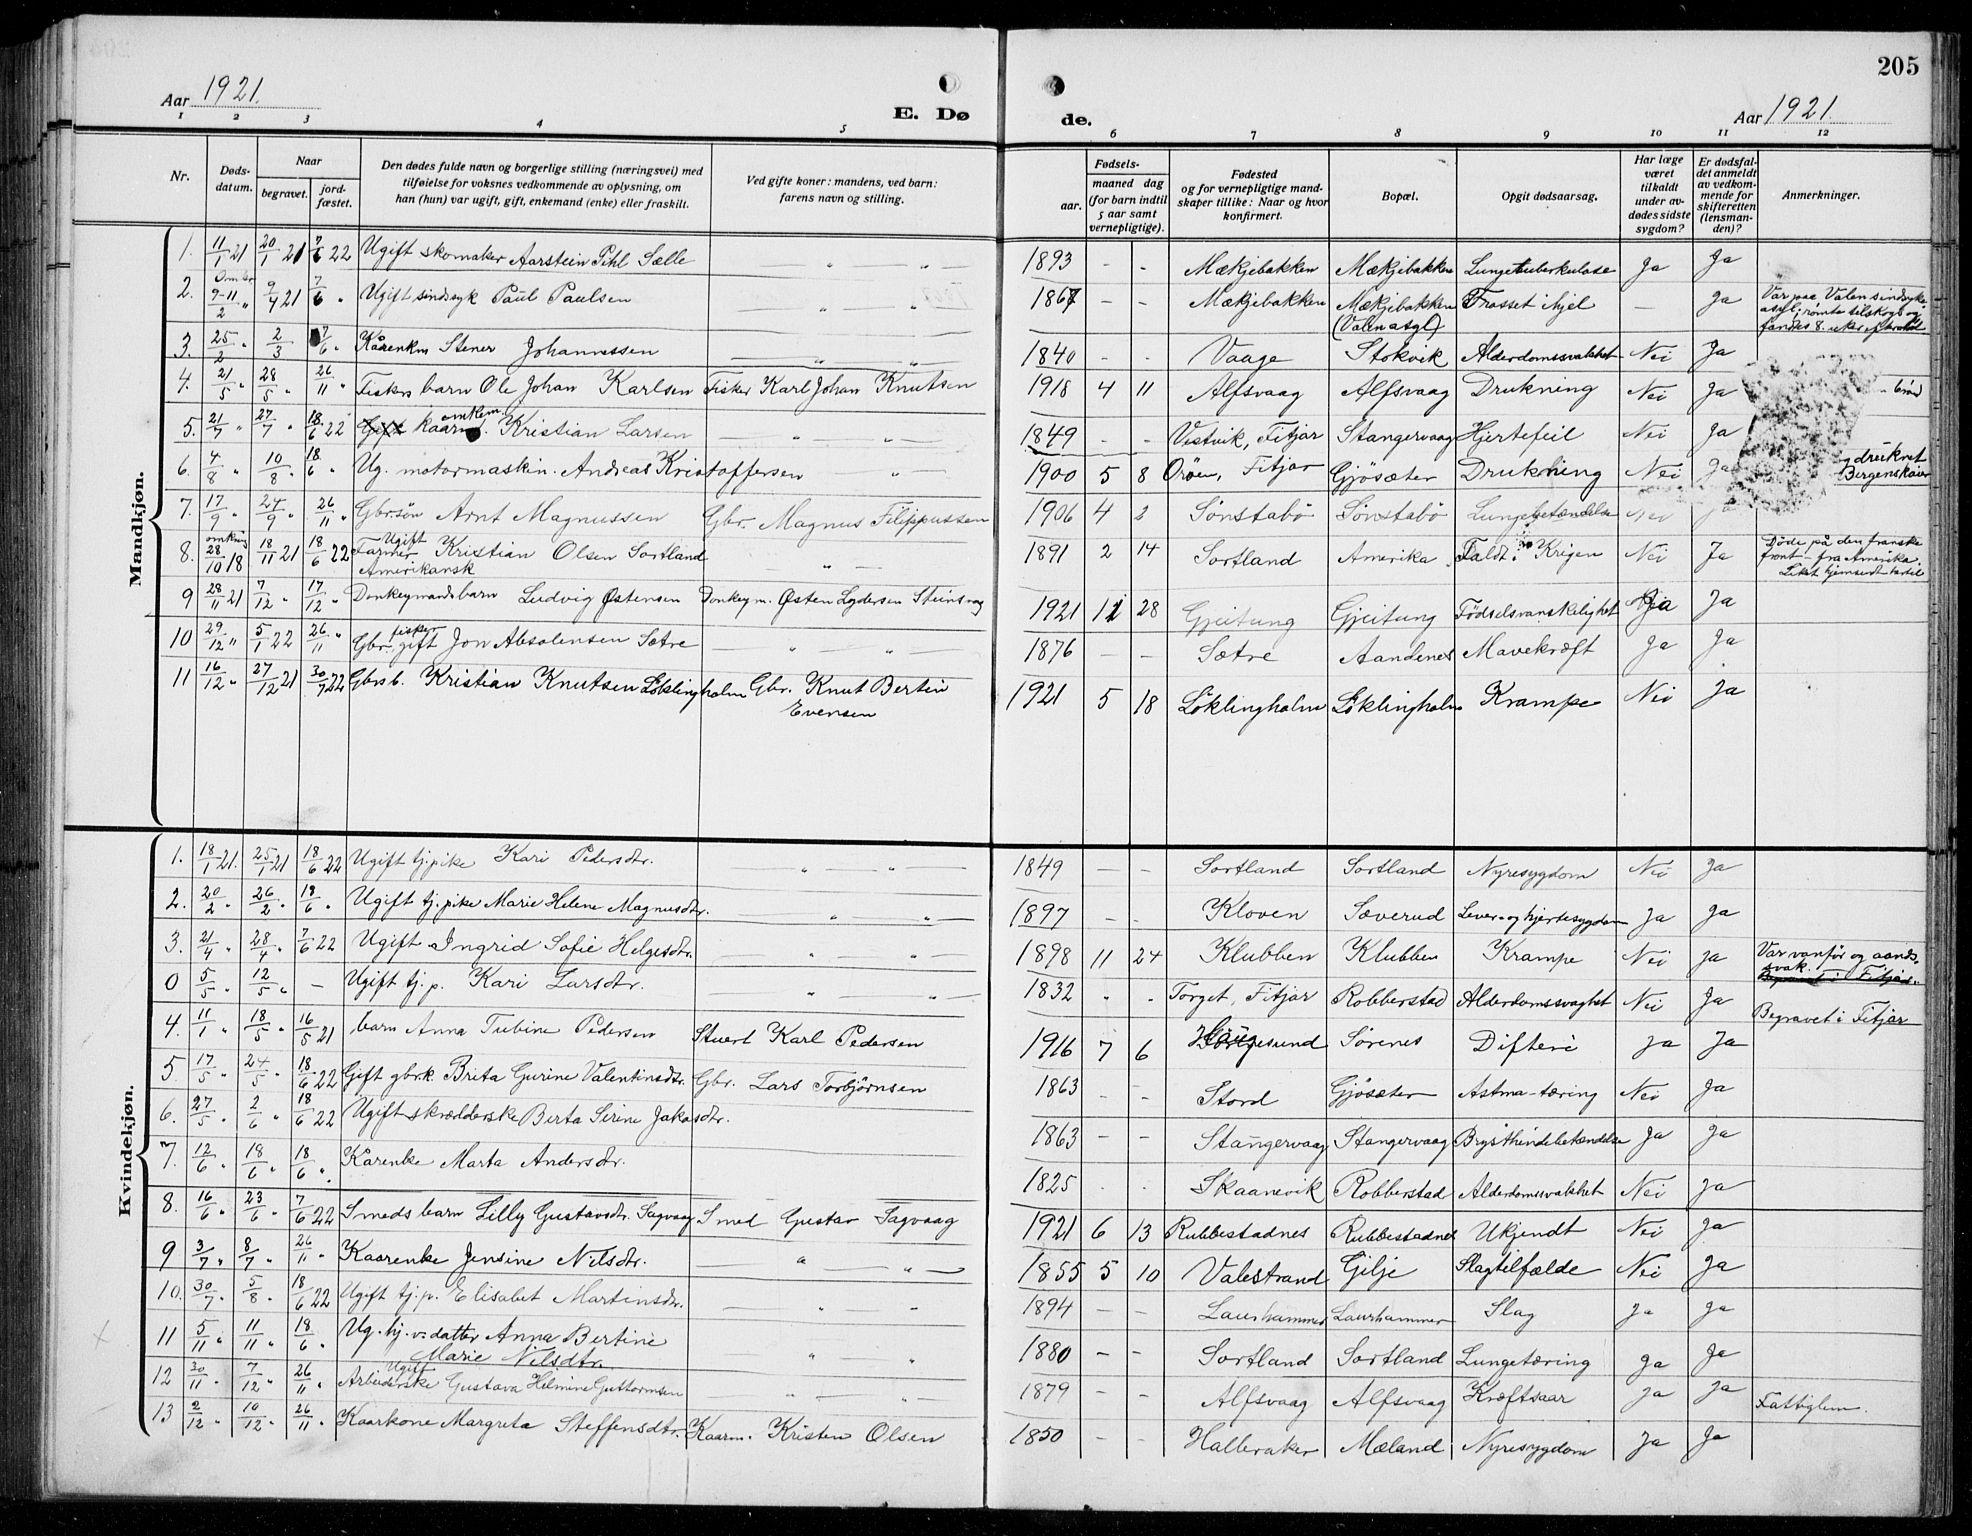 205
Aar 1921.
E. Dø
de.
Aar 1921.
1 2 3 4 5 6 7 8 9 10 11 12
Nr.
Døds-
datum.
Naar
begravet.
jord-
fæstet.
Den dødes fulde navn og borgerlige stilling (næringsvei) med
tilføielse for voksnes vedkommende av oplysning, om
han (hun) var ugift, gift, enkemand (enke) eller fraskilt.
Ved gifte koner: mandens, ved barn:
farens navn og stilling.
Fødsels-
aar.
maaned dag
(for barn indtil
5 aar samt
vernepligtige).
Fødested
og for vernepligtige mand-
skaper tillike: Naar og hvor
konfirmert.
Bopæl.
Opgit dødsaarsag.
Har læge
været
tilkaldt
under av-
dødes sidste
sygdom?
Er dødsfal-
det anmeldt
av vedkom-
mende for
skifteretten
(lensman-
den)?
Anmerkninger.
Mandkjøn.
1. 11/1 21 20/1 21 7/6 22 Ugift skomaker Aarstein Pihl Sælle — " " — 1893 - - Mækjebakken Mækjebakken Lungetuberkulose Ja Ja
2. Omkr 9-11/2 " 9/4 21 7/6 " Ugift sindssyk Paul Paulsen — " " 1867 - - Mækjebakken Mækjebakken (Valen asyl) Frosset ihjel — Ja Var paa Valen sindsyke
asyl; rømte tilskogs og
fandes 8. uker efter
3. 25/2 " 2/3 7/6 " Kårenkm Stener Johannessen — " " — 1840 - - Vaage Stokvik Alderdomssvakhet Nei Ja
4. 21/5 " 28/5 " 26/11 " Fiskers barn Ole Johan Karlsen Fisker Karl Johan Knutsen 1918 4 11 Alfsvaag Alfsvaag Drukning Nei Ja
5. 21/7 " 27/7 " 18/6 22 kaarm. enkem. Kristian Larsen — " " — 1849 - - Vestvik, Fitjar Stangervaag Hjertefeil Nei Ja
6. 4/8 " 10/8 " 18/6 " Ug. motormaskin. Andreas Kristoffersen " — 1900 5 8 Orøen, Fitjar Gjøsæter Drukning Nei Ja druknet
Bergenskaien
7. 17/9 " 24/9 " 26/11 " Gbrsøn Arnt Magnussen Gbr. Magnus Filippussen 1906 4 2 Sønstabø Sønstabø Lungebetændelse Nei Ja
8. omkring 28/10 18 18/11 21 18/6 22 Ugift Farmer Kristian Olsen Sortland — " — 1891 2 14 Sortland Amerika Faldt i Krigen Nei Ja Døde på den franske
Amerikansk front - fra Amerika.
Liket hjemsendt hertil
9 28/11 21 7/12 " 17/12 " Donkeymands barn Ludvig Østensen Donkeym. Østen Lydersen Steinsvag 1921 11 28 Gjeitung Gjeitung Fødselsvanskelighet Ja Ja
10 29/12 " 5/1 22 26/11 " Gbr. fisker gift Jon Absolensen Sætre — " " — 1876 - - Sætre Aandenes Mavekræft Ja Ja
11 16/12 " 27/12 21 30/7 22 Gbrsb. Kristian Knutsen Løklingholm Gbr. Knut Bertin
Evensen 1921 5 18 Løklingholm Løklingholm Krampe Nei Ja
Kvindekjøn.
1. 18/1 21. 25/1 21 18/6 22 Ugift tj.pike Kari Pedersdtr. — " " — 1849 - - Sortland Sortland Nyresygdom Nei Ja
2. 20/2 " 26/2 " 18/6 " Ugift tj.pike Marie Helene Magnusdtr. — " " — 1897 - - Kloven Sæverud Lever- og hjertesygdom Ja Ja
3. 21/4 " 28/4 " 7/6 22 Ugift Ingrid Sofie Helgesdtr. — " " — 1898 11 24 Klubben Klubben Krampe Nei Ja Var vanfør og aands-
svak.
Begravet i Fitjar.
0 5/5 " 12/5 " - Ugift tj. p. Kari Larsdtr. — " " — 1832 " - Torget, Fitjar Robberstad Alderdomssvaghet Nei Ja Begravet i Fitjar
4. 11/1 " 18/5 " 16/5 21 barn Anna Tubine Pedersen Stuert Karl Pedersen 1916 7 6 Haugesund Sørenes Difteri Ja Ja
5 17/5 " 24/5 " 18/6 22 Gift gbrk. Brita Gurine Valentinsdtr. Gbr. Lars Torbjørnsen 1863 Stord Gjøsæter Astma-tæring Nei Ja
6. 27/5 " 2/6 " 18/6 22 Ugift skrædderske Berta Serine Jakobsdtr. 1863 - - Stangervaag Stangervaag Brysthindebetændelse Ja Ja
7. 12/6 " 18/6 " 18/6 " Kårenke Marta Andersdtr. 1825 - - Skaanevik Robberstad Alderdomssvakhet Nei Ja
8. 16/6 " 23/6 " 7/6 22 Smeds barn Lilly Gustavsdtr. Sagvaag Smed Gustav Sagvaag 1921 6 13 Rubbestadnes Rubbestadnes Ukjendt Nei Ja
9 3/7 " 8/7 " 26/11 " Kaarenke Jensine Nilsdtr. — " " — 1855 5 10 Valestrand Gilje Slagtilfælde Nei Ja
10. 30/7 " 5/8 " 18/6 22 Ugift tj. p. Elisabet Martinsdtr. — " " 1894 - - Laurhammer Laurhammer Slag Ja Ja
11 5/11 " 11/11 " 18/6 " Ug. hj. v. datter Anna Bertine
Marie Nilsdtr. — " " 1880 - - Sortland Sortland Lungetæring Ja Ja
12 30/11 " 7/12 " 26/11 " Ugift Arbeiderske Gustava Helmine Guttormsen — " " 1879 - - Alfsvaag Alfsvaag Kræftsaar Ja Ja Fattiglem.
13 2/12 " 10/12 " 26/11 " Kaarkone Margreta Steffensdtr. Kaarm. Kristen Olsen 1850 - - Halleraker Mæland Nyresygdom Ja Ja